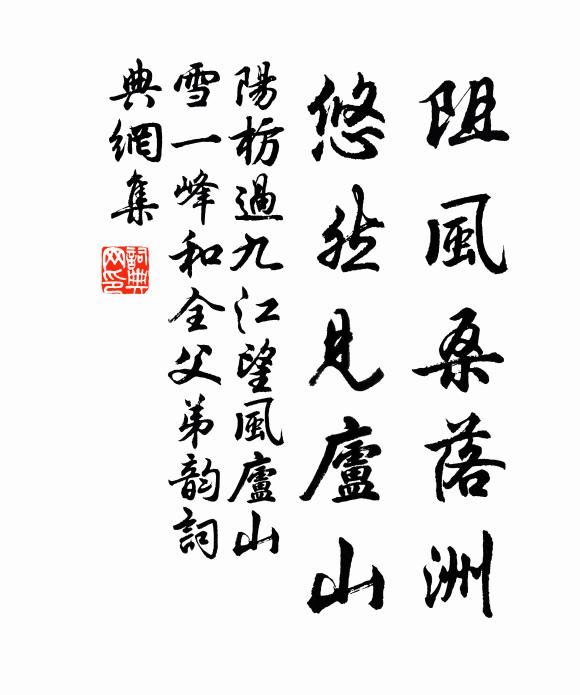 阻風桑落洲
悠然見廬山
陽枋過九江望風廬山
雪一峰和全父弟韵詞
典網集
詞典
网印